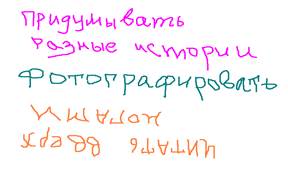 Придумывать
разные истории
Фотографировать
читать вверх
ногами